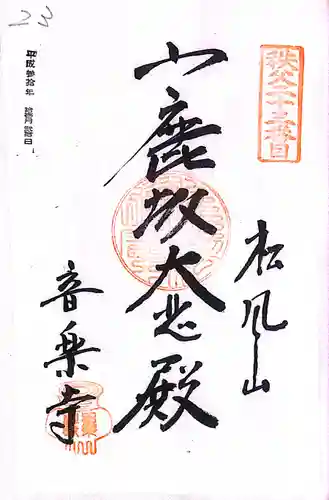 秩父二十三番目
松風山
小鹿坂大悲殿
音楽寺
平成参拾年
23